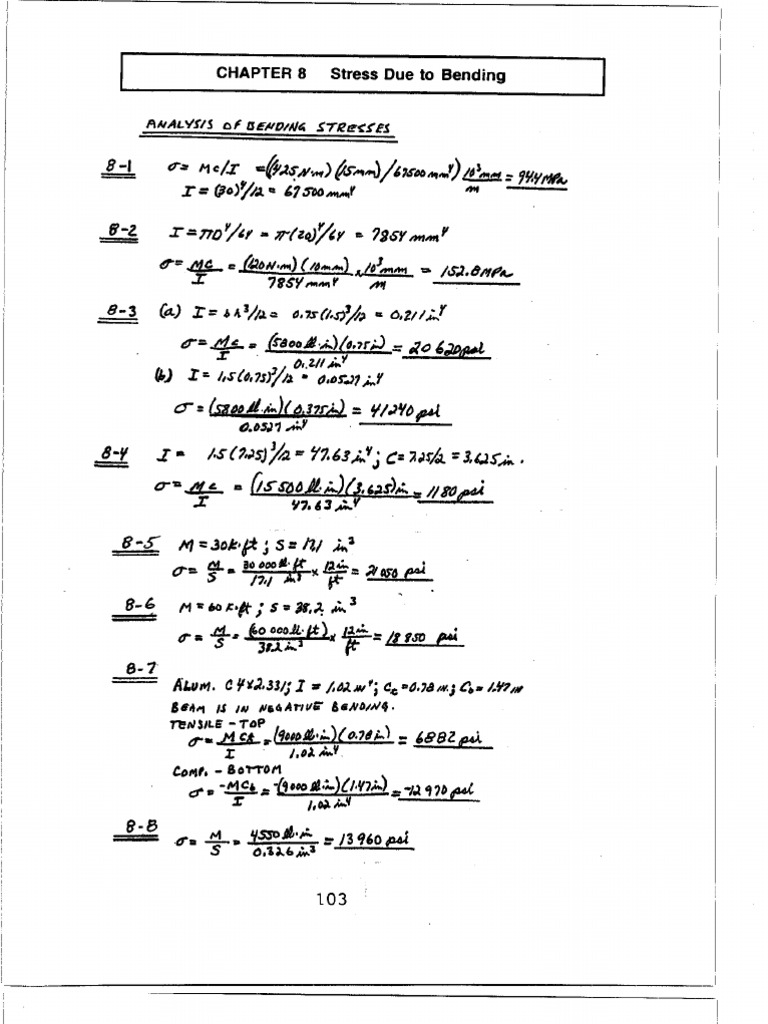 CHAPTER 8 Stress Due to Bending
ANALYSIS OF BENDING STRESSES
8-1 σ = Mc/I = ((425 N·m)(15mm)/67500 mm⁴) 10³mm/m = 94.4 MPa
I = (30)⁴/12 = 67500 mm⁴
8-2 I = πD⁴/64 = π(20)⁴/64 = 7854 mm⁴
σ = MC/I = (120 N·m)(10mm)/7854 mm⁴ × 10³mm/m = 152.8 MPa
8-3 (a) I = bh³/12 = 0.75(1.5)³/12 = 0.211 in⁴
σ = Mc/I = (5800 lb·in)(0.75 in)/0.211 in⁴ = 20 620 psi
(b) I = 1.5(0.75)³/12 = 0.0527 in⁴
σ = (5800 lb·in)(0.375 in)/0.0527 in⁴ = 41240 psi
8-4 I = 1.5(7.25)³/12 = 47.63 in⁴; C = 7.25/2 = 3.625 in.
σ = Mc/I = (15 500 lb·in)(3.625) in/47.63 in⁴ = 1180 psi
8-5 M = 30K·ft; S = 17.1 in³
σ = M/S = 30 000 lb·ft/17.1 in³ × 12 in/ft = 21 050 psi
8-6 M = 60 K·ft; S = 38.2 in³
σ = M/S = (60 000 lb·ft)/38.2 in³ × 12 in/ft = 18 850 psi
8-7
ALUM. C4×2.331; I = 1.02 in⁴; Cₜ = 0.78 in.; C_b = 1.47 in
BEAM IS IN NEGATIVE BENDING.
TENSILE - TOP
σ = MCₜ/I = (9000 lb·in)(0.78 in)/1.02 in⁴ = 6882 psi
COMP. - BOTTOM
σ = -MC_b/I = -(9000 lb·in)(1.47 in)/1.02 in⁴ = -12 970 psi
8-8 σ = M/S = 4550 lb·in/0.326 in³ = 13 960 psi
103